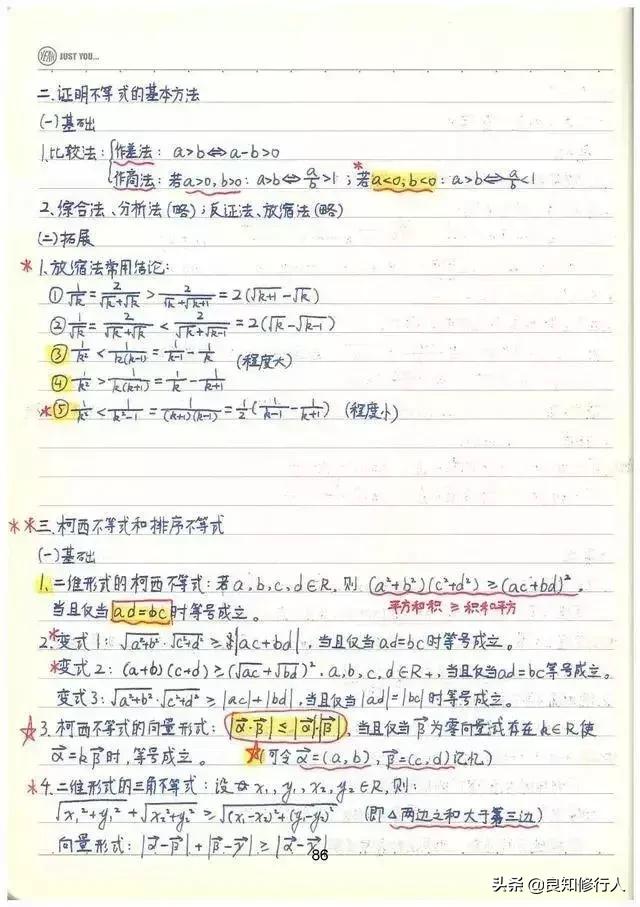 YEAH JUST YOU...
二.证明不等式的基本方法
(一)基础
1.比较法:{作差法: a>b⇔a-b>0
作商法:若a>0,b>0: a>b⇔a/b>1 ; *若a<0,b<0: a>b⇔a/b<1
2.综合法、分析法(略);反证法、放缩法(略)
(二)拓展
*1.放缩法常用结论:
① 1/√k = 2/(√k+√k) > 2/(√k+√(k+1)) = 2(√(k+1)-√k)
② 1/√k = 2/(√k+√k) < 2/(√k+√(k-1)) = 2(√k-√(k-1))
③ 1/k² < 1/(k(k-1)) = 1/(k-1) - 1/k (程度大)
④ 1/k² > 1/(k(k+1)) = 1/k - 1/(k+1)
*⑤ 1/k² < 1/(k²-1) = 1/((k+1)(k-1)) = 1/2(1/(k-1) - 1/(k+1)) (程度小)
**三.柯西不等式和排序不等式
(一)基础
1.二维形式的柯西不等式:若a,b,c,d∈R,则 (a²+b²)(c²+d²)≥(ac+bd)²,
当且仅当ad=bc时等号成立。 平方和积≥积和平方
2.*变式1: √(a²+b²)·√(c²+d²)≥|ac+bd|,当且仅当ad=bc时等号成立。
*变式2: (a+b)(c+d)≥(√ac+√bd)².a,b,c,d∈R+,当且仅当ad=bc等号成立。
变式3: √(a²+b²)·√(c²+d²)≥|ac|+|bd|,当且仅当|ad|=|bc|时等号成立。
☆3.柯西不等式的向量形式: |α⃗·β⃗|≤|α⃗|·|β⃗|,当且仅当β⃗为零向量或存在k∈R,使
α⃗=kβ⃗时,等号成立。 ☆(可令α⃗=(a,b),β⃗=(c,d)记忆)
*4.二维形式的三角不等式:设x₁,y₁,x₂,y₂∈R,则:
√(x₁²+y₁²)+√(x₂²+y₂²)≥√((x₁-x₂)²+(y₁-y₂)²) (即△两边之和大于第三边)
向量形式: |α⃗-β⃗|+|β⃗-γ⃗|≥|α⃗-γ⃗|
86
头条@良知修行人